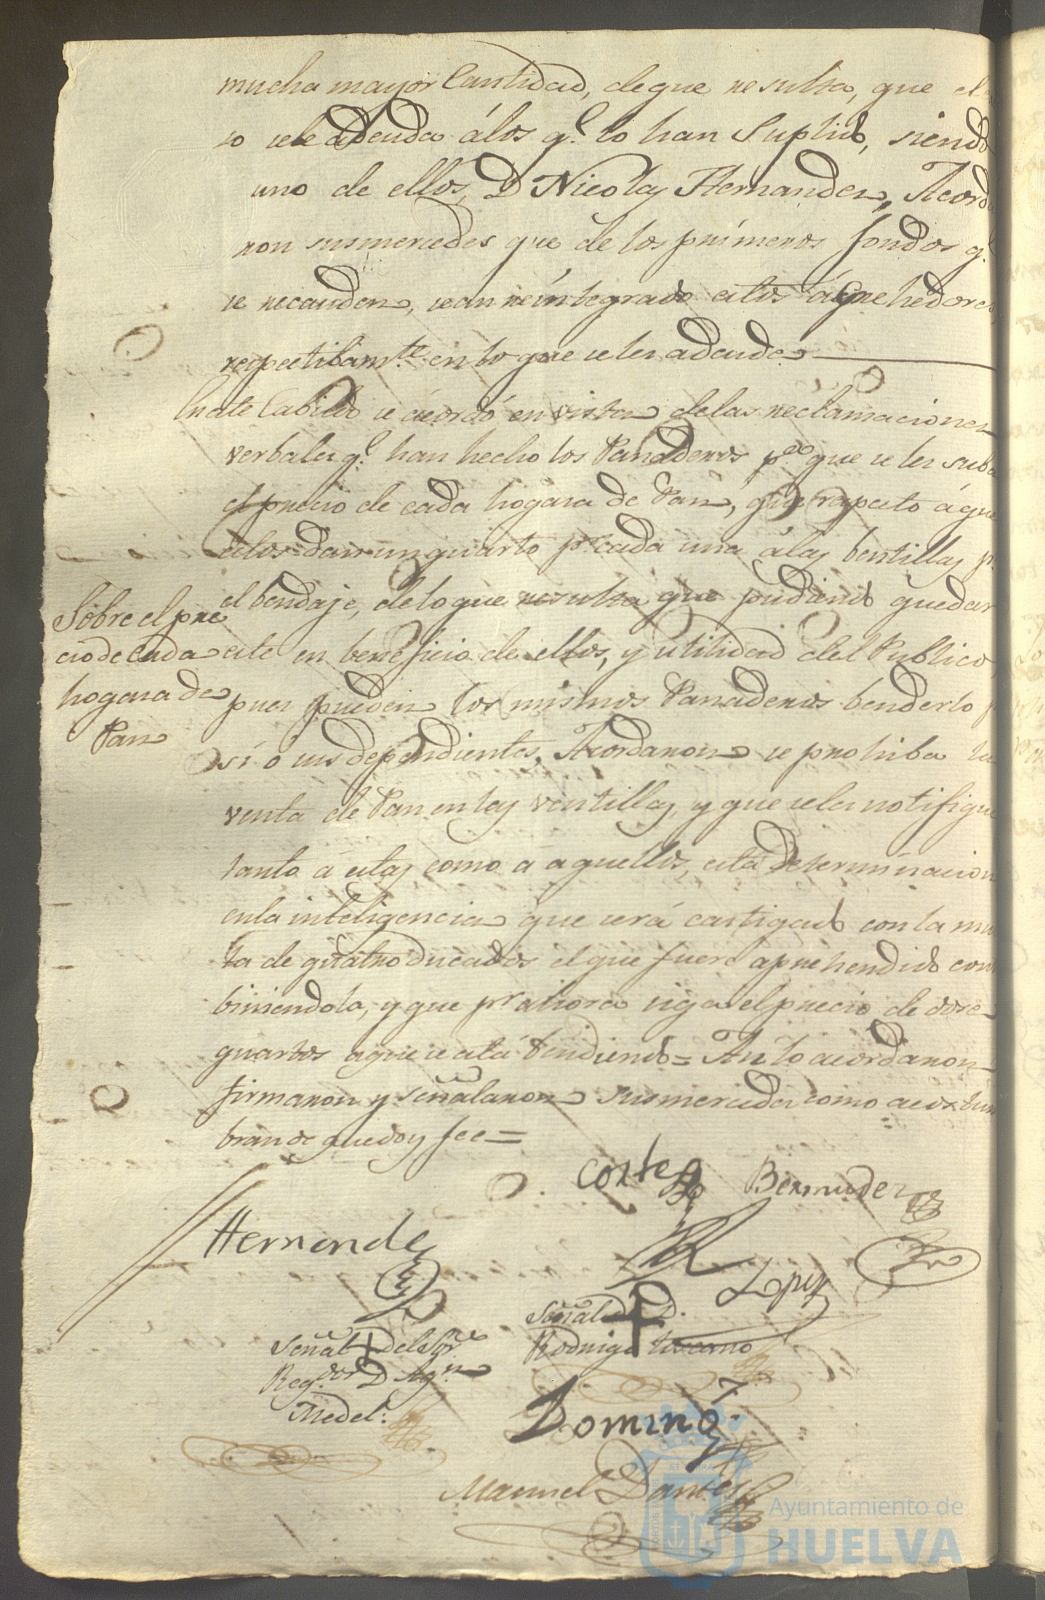 mucha mayor Cantidad, deque resulta, que el
se le adeuda álos q.e lo han Suplido, siendo
uno de ellos, D Nicolas Hernandez, Acorda
ron susmercedes que de los primeros fondos q.e
se recauden, sean reintegrado a los acrehedores
respectibam.te en lo que se les adeuda
En este Cabildo se acordó en vista delas reclamaciones
verbales q.e han hecho los Panaderos p.a que se les suba
el precio de cada hogaza de Pan, que respecto á que
ellos dan un quarto p.r cada una álas bentillas p.r
el bendaje, delo que resulta que pudiendo quedar
este en beneficio de ellos, y utilidad del Publico
pues pueden los mismos Panaderos benderlo p
sí ó sus dependientes, Acordaron se prohiba la
venta de Pan en las ventillas, y que se les notifique
tanto á estas como a aquellos, esta determinacion
enla inteligencia que será castigado con la mul
ta de quatro ducados el que fuere aprehendido contra
biniendola, y que p.r ahora siga el precio de doce
quartos aque se está bendiendo = Asi lo acordaron
firmaron y señalaron susmercedes como acostum
bran de que doy fee =
Sobre el pre
cio de Cada
hogaza de
Pan
Cortes Bermudez
Hernandez
Lopez
Señal de D.
Rodrigo Toscano
Señal Del Sr.
Reg.dor D Ag.n
Medel.
Doming
Manuel
Ayuntamiento de
HUELVA